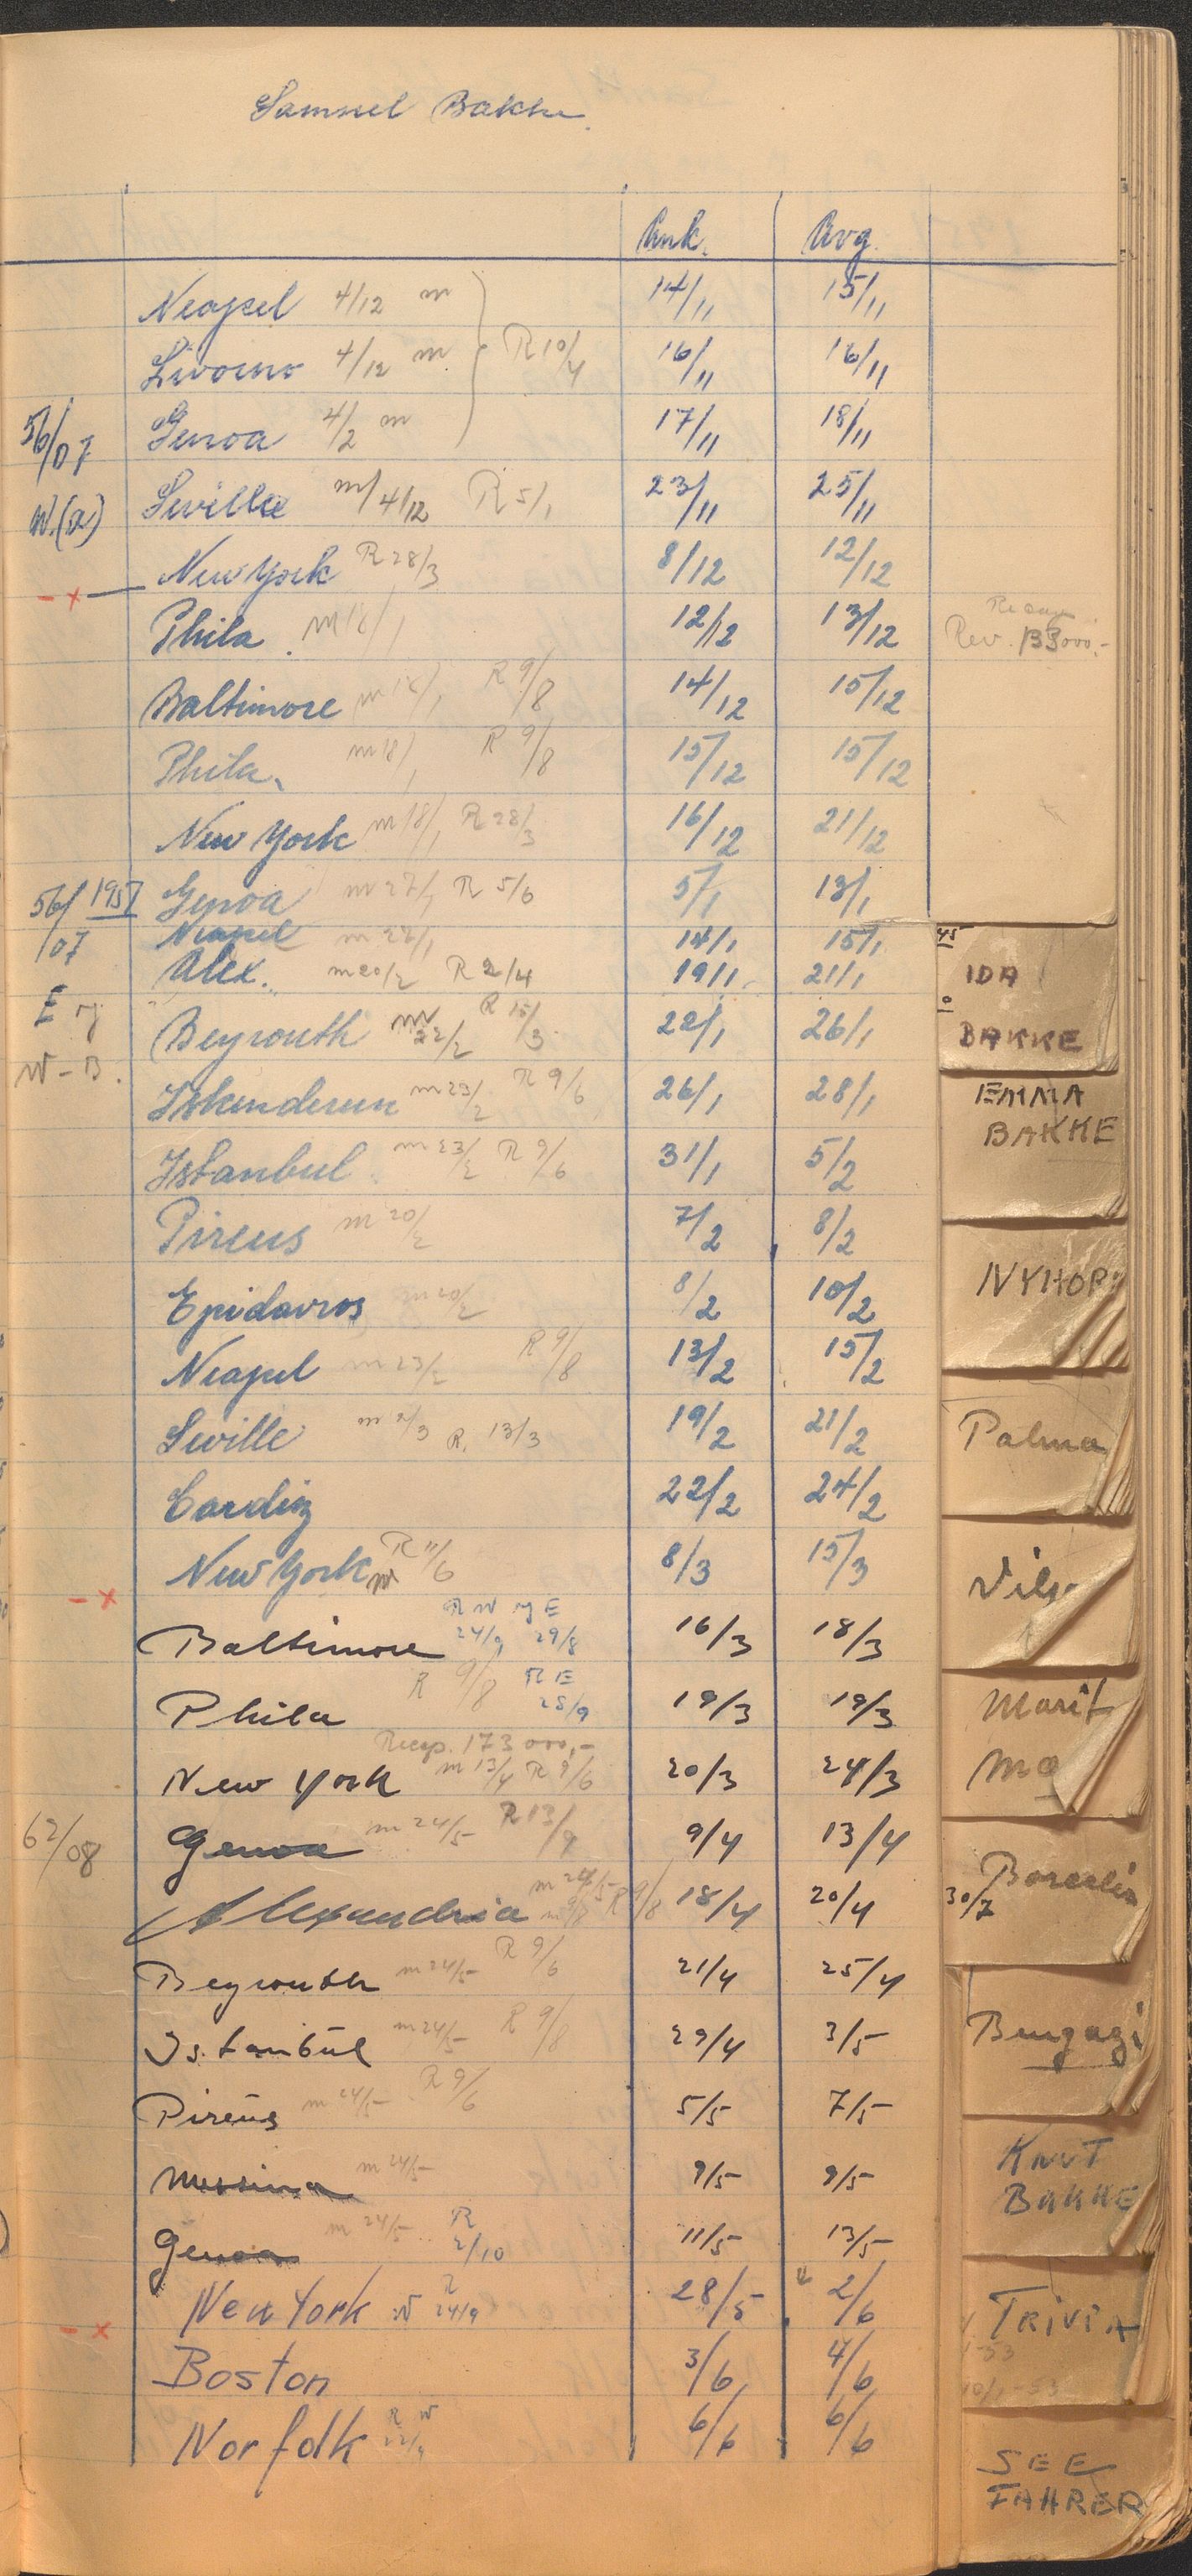 Samuel Bakke
Ank. Avg.
Neapel 4/12 m 14/11 15/11
Livorno 4/12 m R 10/4 16/11 16/11
56/07 Genoa 4/2 m 17/11 18/11
W.(a) Seville m/4/12 R 5/1 23/11 25/11
-x- New York R 28/3 8/12 12/12
Phila. m 18/1 12/12 13/12 Rev. 133000.-
Baltimore m 18/1 R 9/8 14/12 15/12
Phila. m 18/1 R 9/8 15/12 15/12
New York m 18/1 R 28/3 16/12 21/12
56/ 1957 Genoa m 27/1 R 5/6 5/1 13/1
107 Neapel m 22/1 14/1 15/1
Alex. m 20/2 R 2/4 19/1 21/1
E og Beyrouth m 22/2 R 15/3 22/1 26/1
W-B. Iskenderun m 23/2 R 9/6 26/1 28/1
Istanbul m 23/2 R 9/6 31/1 5/2
Pireus m 20/2 7/2 8/2
Epidavros m 20/2 8/2 10/2
Neapel m 23/2 R 9/8 13/2 15/2
Seville m 2/3 R. 13/3 19/2 21/2
Cardiz 22/2 24/2
New York m R 11/6 8/3 15/3
-x
R W og E
Baltimore 24/9 29/8 16/3 18/3
Phila R 9/8 R E 25/9 19/3 19/3
Recap. 173 000,-
New York m 13/4 R 9/6 20/3 24/3
62/08 Genoa m 24/5 R 13/9 9/4 13/4
Alexandria m 24/5 R 9/8 18/4 20/4
Beyrouth m 24/5 R 9/6 21/4 25/4
Istanbul m 24/5 R 9/8 29/4 3/5
Pireus m 24/5 R 9/6 5/5 7/5
Messina m 24/5 9/5 9/5
Genoa m 24/5 R 2/10 11/5 13/5
New York W R 24/9 28/5 2/6
-x
Boston 3/6 4/6
Norfolk R W 6/6 6/6
45
IDA
BAKKE
EMMA
BAKKE
NYHOR
Palma
Vils
Marit
Mæ
30/7
Bengazi
KNUT
BAKKE
TRIVIA
SEE
FAHRER